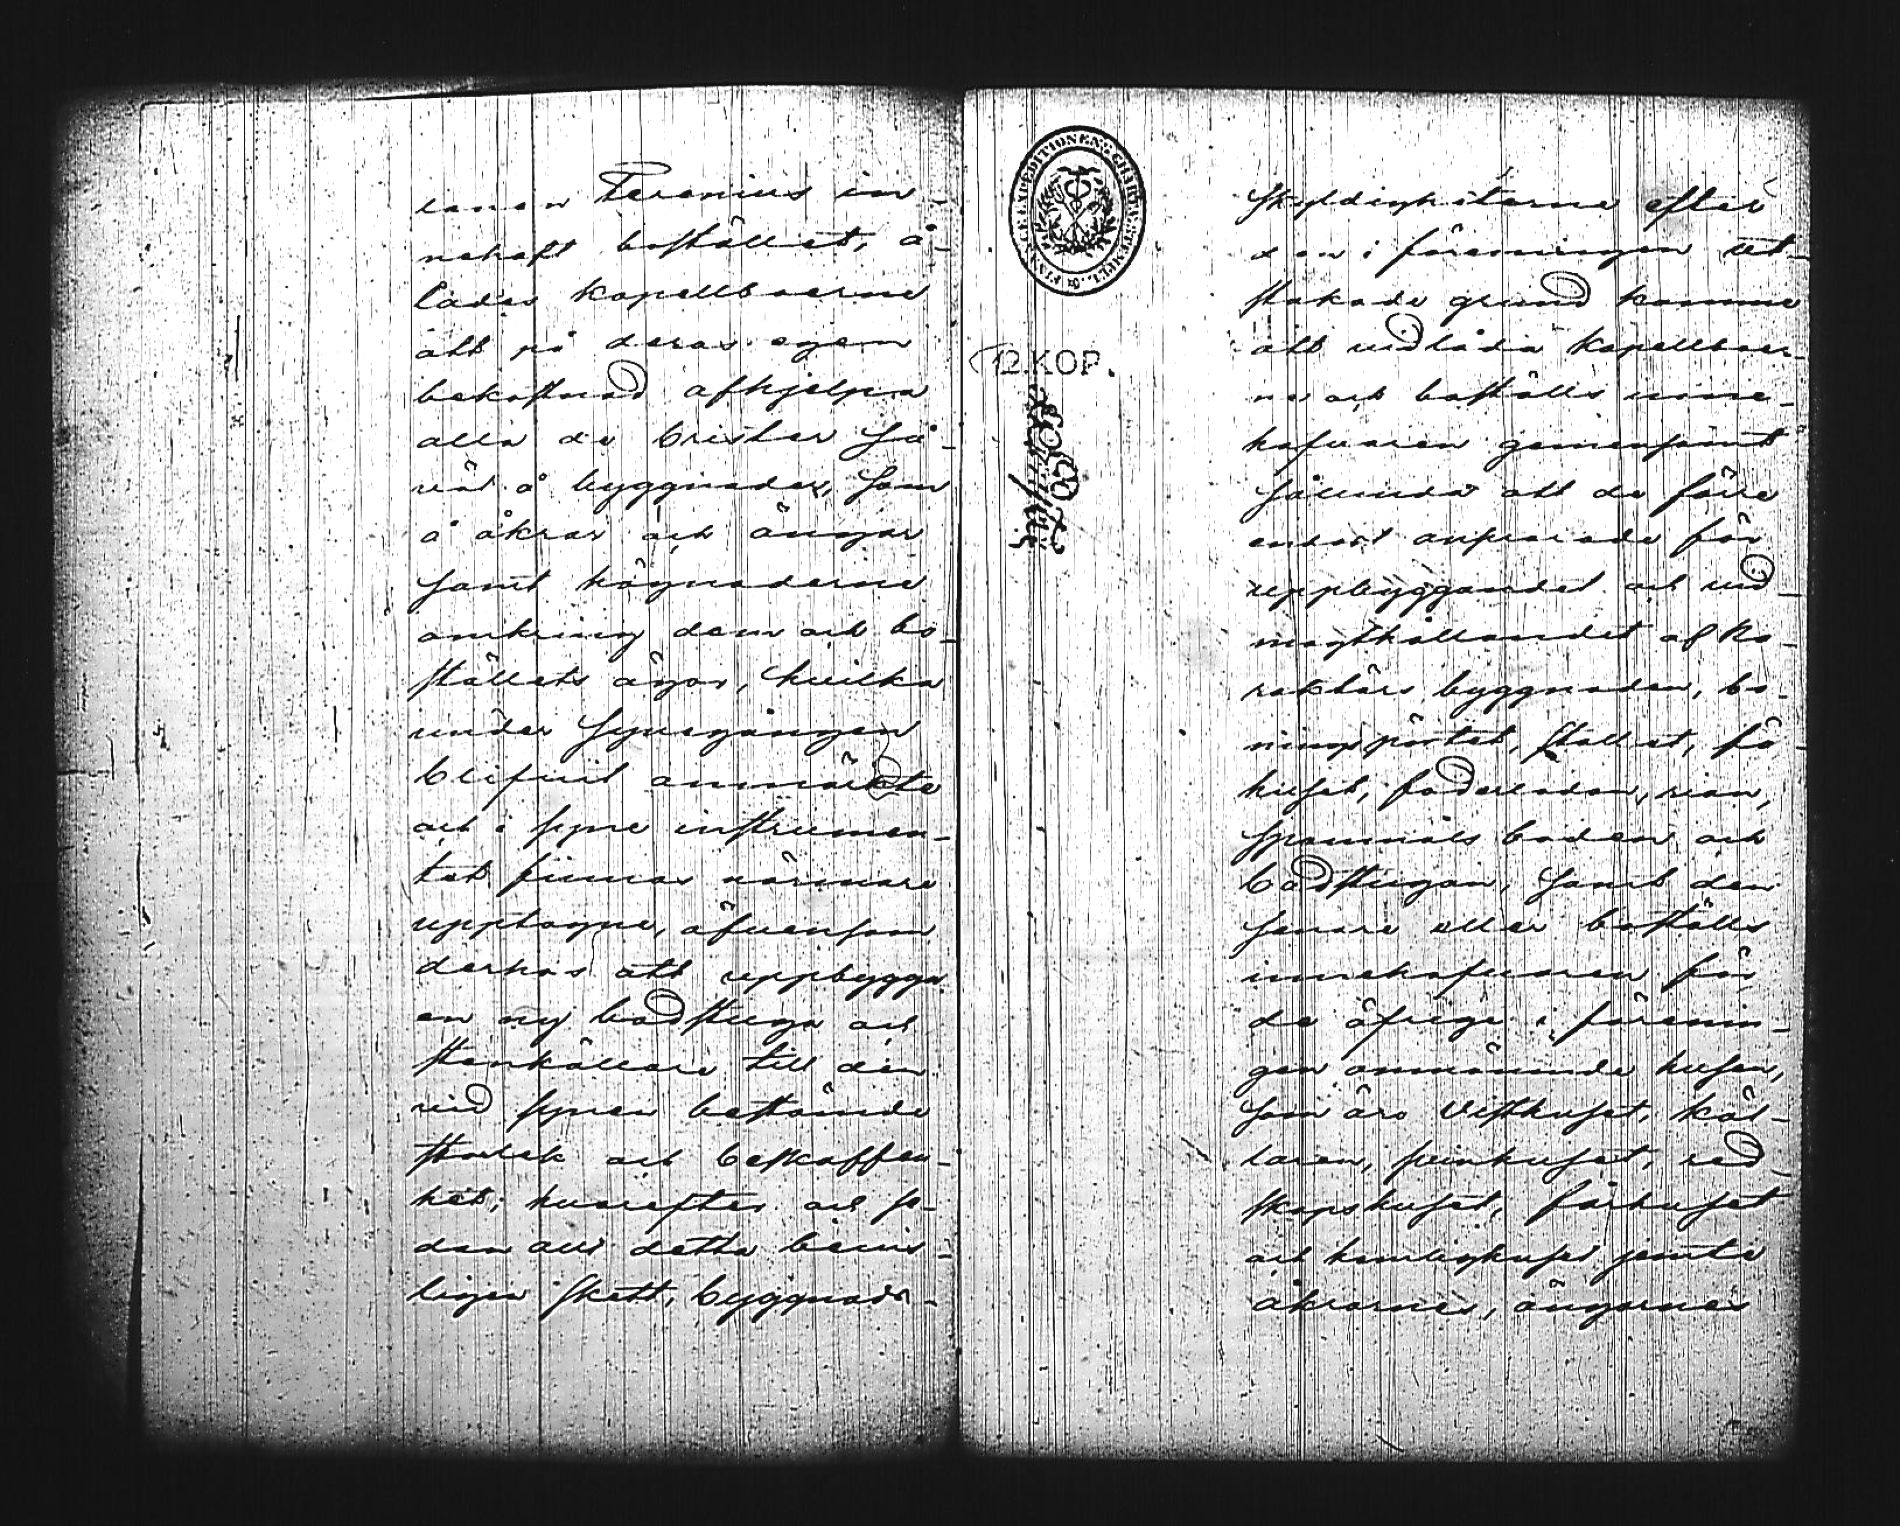 lanen Ferenius in-
nehaft bostället, å-
lades kapellboerne
att på deras egen
bekostnad afhjelpa
alla de brister så-
väl å byggnader, som
å åkrar och ängar
samt hägnaderne
omkring dem och bo-
ställets ägor, hvilka
under synegången
blifvit anmärkte
och i syne instrumen-
tet finnas närmare
upptagne, äfvensom
derhos att uppbygga
en ny badstuga och
stenkällare till den
vid synen bestämde
storlek och beskaffen-
het; hvarefter och se-
dan allt detta bevis-
ligen skett, byggnads-
FINSKA EXPEDITIONENS CHARTÆ STEMPEL.
12.KOP.
skyldigheterne efter
den i föreningen ut-
stakade grund komme
att vidlåda kapellboer-
ne och boställs inne-
hafvaren gemensamt
sålunda att de förre
endast ansvarade för
uppbyggandet och vid-
magthållandet af ka-
raktärs byggnaden, bo-
ningspörtet, stallet, fä-
huset, foderladan, rian,
spanmåls boden och
badstugan, samt den
senare eller boställs
innehafvaren för
de öfrige i förenin-
gen omnämnde husen,
som äro visthuset, käl-
laren, svinhuset, red-
skapshuset, fårhuset
och hemlighuset jemte
åkrarnes, ängarnes